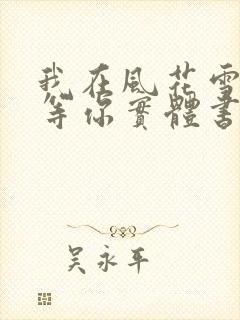 我在風花雪
等你實體書
吳永平